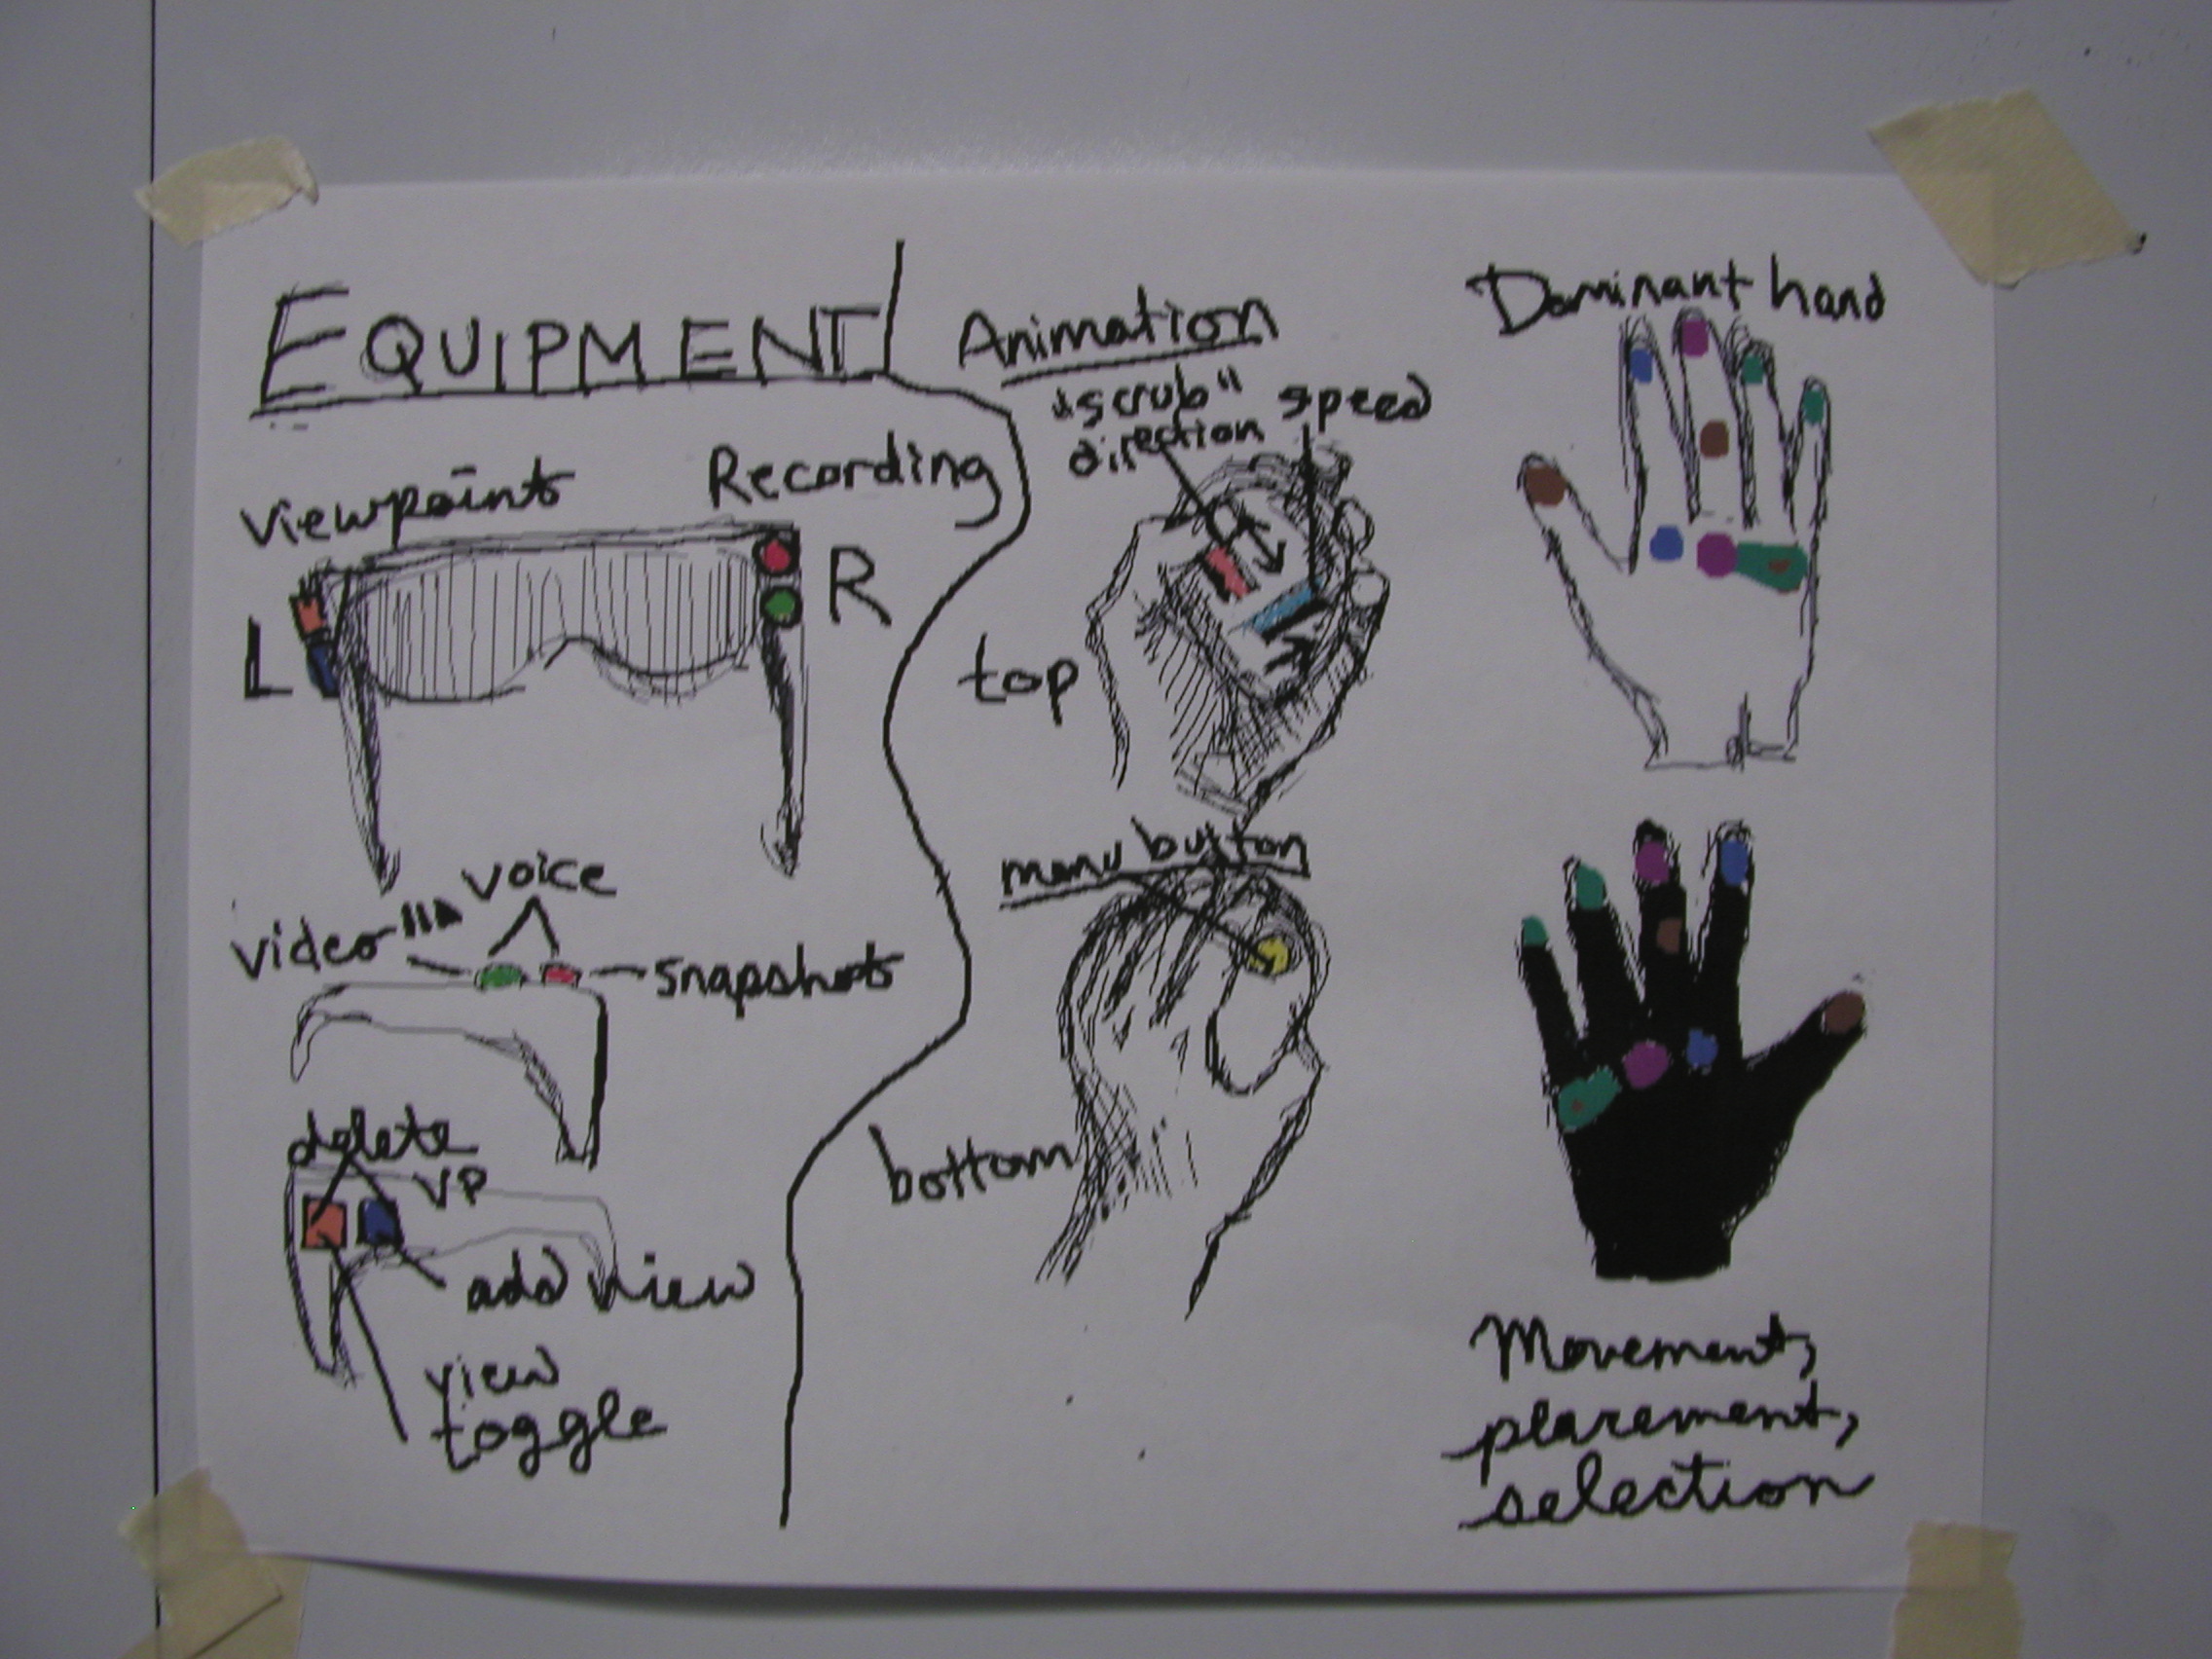 EQUIPMENT
Viewpoints
Recording
L
R
voice
video
snapshots
delete
VP
add view
view
toggle
Animation
"scrub"
direction
speed
top
menu button
bottom
Dominant hand
Movement,
placement,
selection